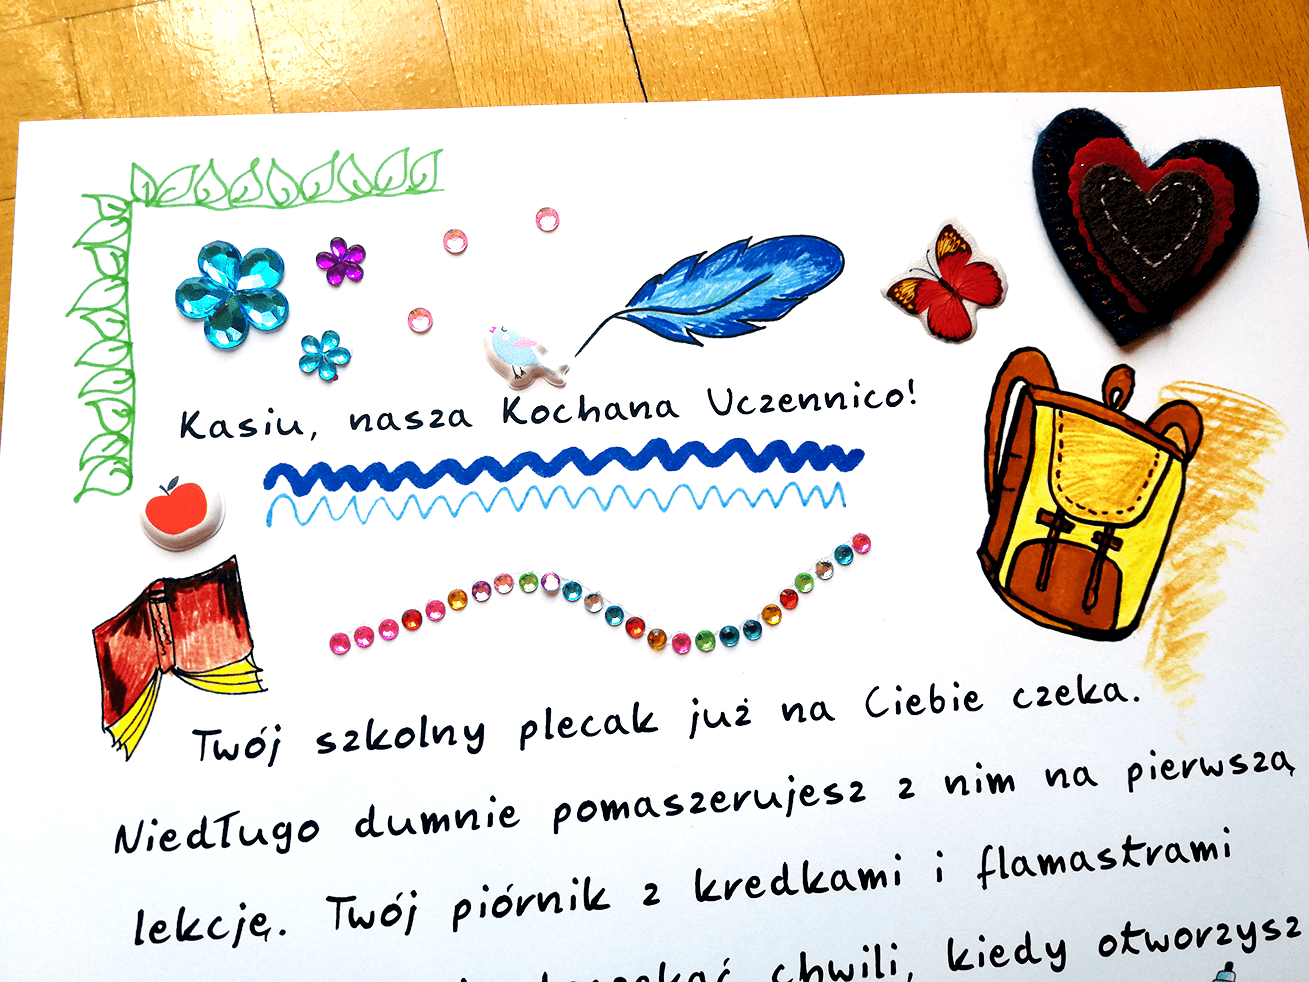 Kasiu, nasza Kochana Uczennico!
Twój szkolny plecak już na Ciebie czeka.
Niedługo dumnie pomaszerujesz z nim na pierwszą
lekcję. Twój piórnik z kredkami i flamastrami
chwili, kiedy otworzysz